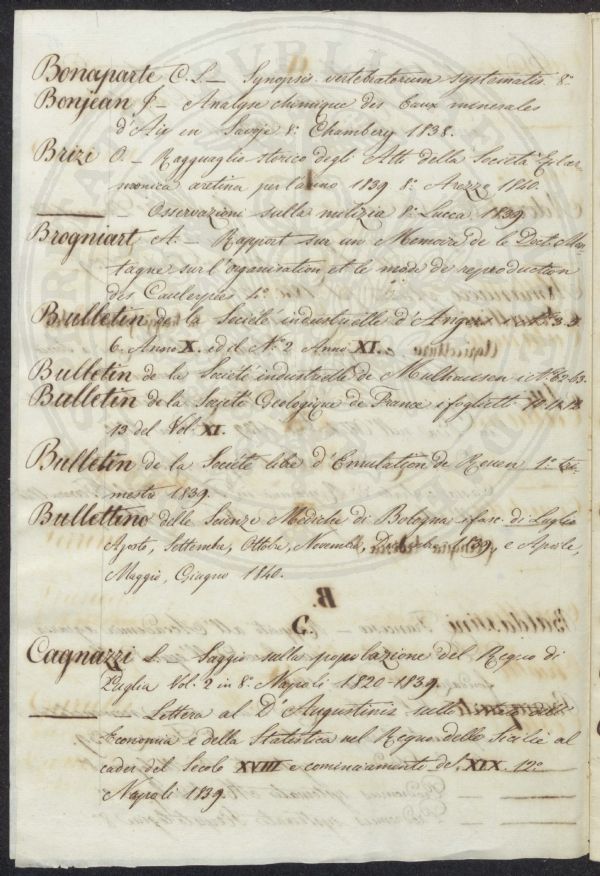 Bonaparte C. L. — Synopsis vertebratorum systematis. 8.°
Bonjean J. — Analyse chimique des Eaux minerales
d'Aix en Savoje 8.° Chambery 1838.
Brizi O. — Ragguaglio storico degli Atti della Società Filar-
monica aretina per l'anno 1839 8.° Arezzo 1840.
— Osservazioni sulla milizia 8.° Lucca 1839.
Brogniart, A. — Rapport sur un Memoire de le Doct. Mon-
tagne sur l'organisation et le mode de reproduction
des Caulerpées 4.°
Bulletin de la Société industrielle d'Angers
6. Anno X. ed il N.° 2 Anno XI.
Bulletin de la Société industrielle de Mulhausen i N.° 62-63.
Bulletin de la Société Geologique de France i foglietti 10. 11. 12.
13 del Vol. XI.
Bulletin de la Société libre d'Emulation de Rouen 1.° tri-
mestre 1839.
Bullettino delle Scienze Mediche di Bologna i fasc. di Luglio
Agosto, Settembre, Ottobre, Novembre, Dicembre 1839, e Aprile,
Maggio, Giugno 1840.
C.
Cagnazzi L. — Saggio sulla popolazione del Regno di
Puglia Vol. 2 in 8.° Napoli 1820-1839.
— Lettera al D.r Augustinis sullo
Economia e della Statistica nel Regno delle Sicilie al
cader del Secolo XVIII e cominciamento del XIX. 12.°
Napoli 1839.